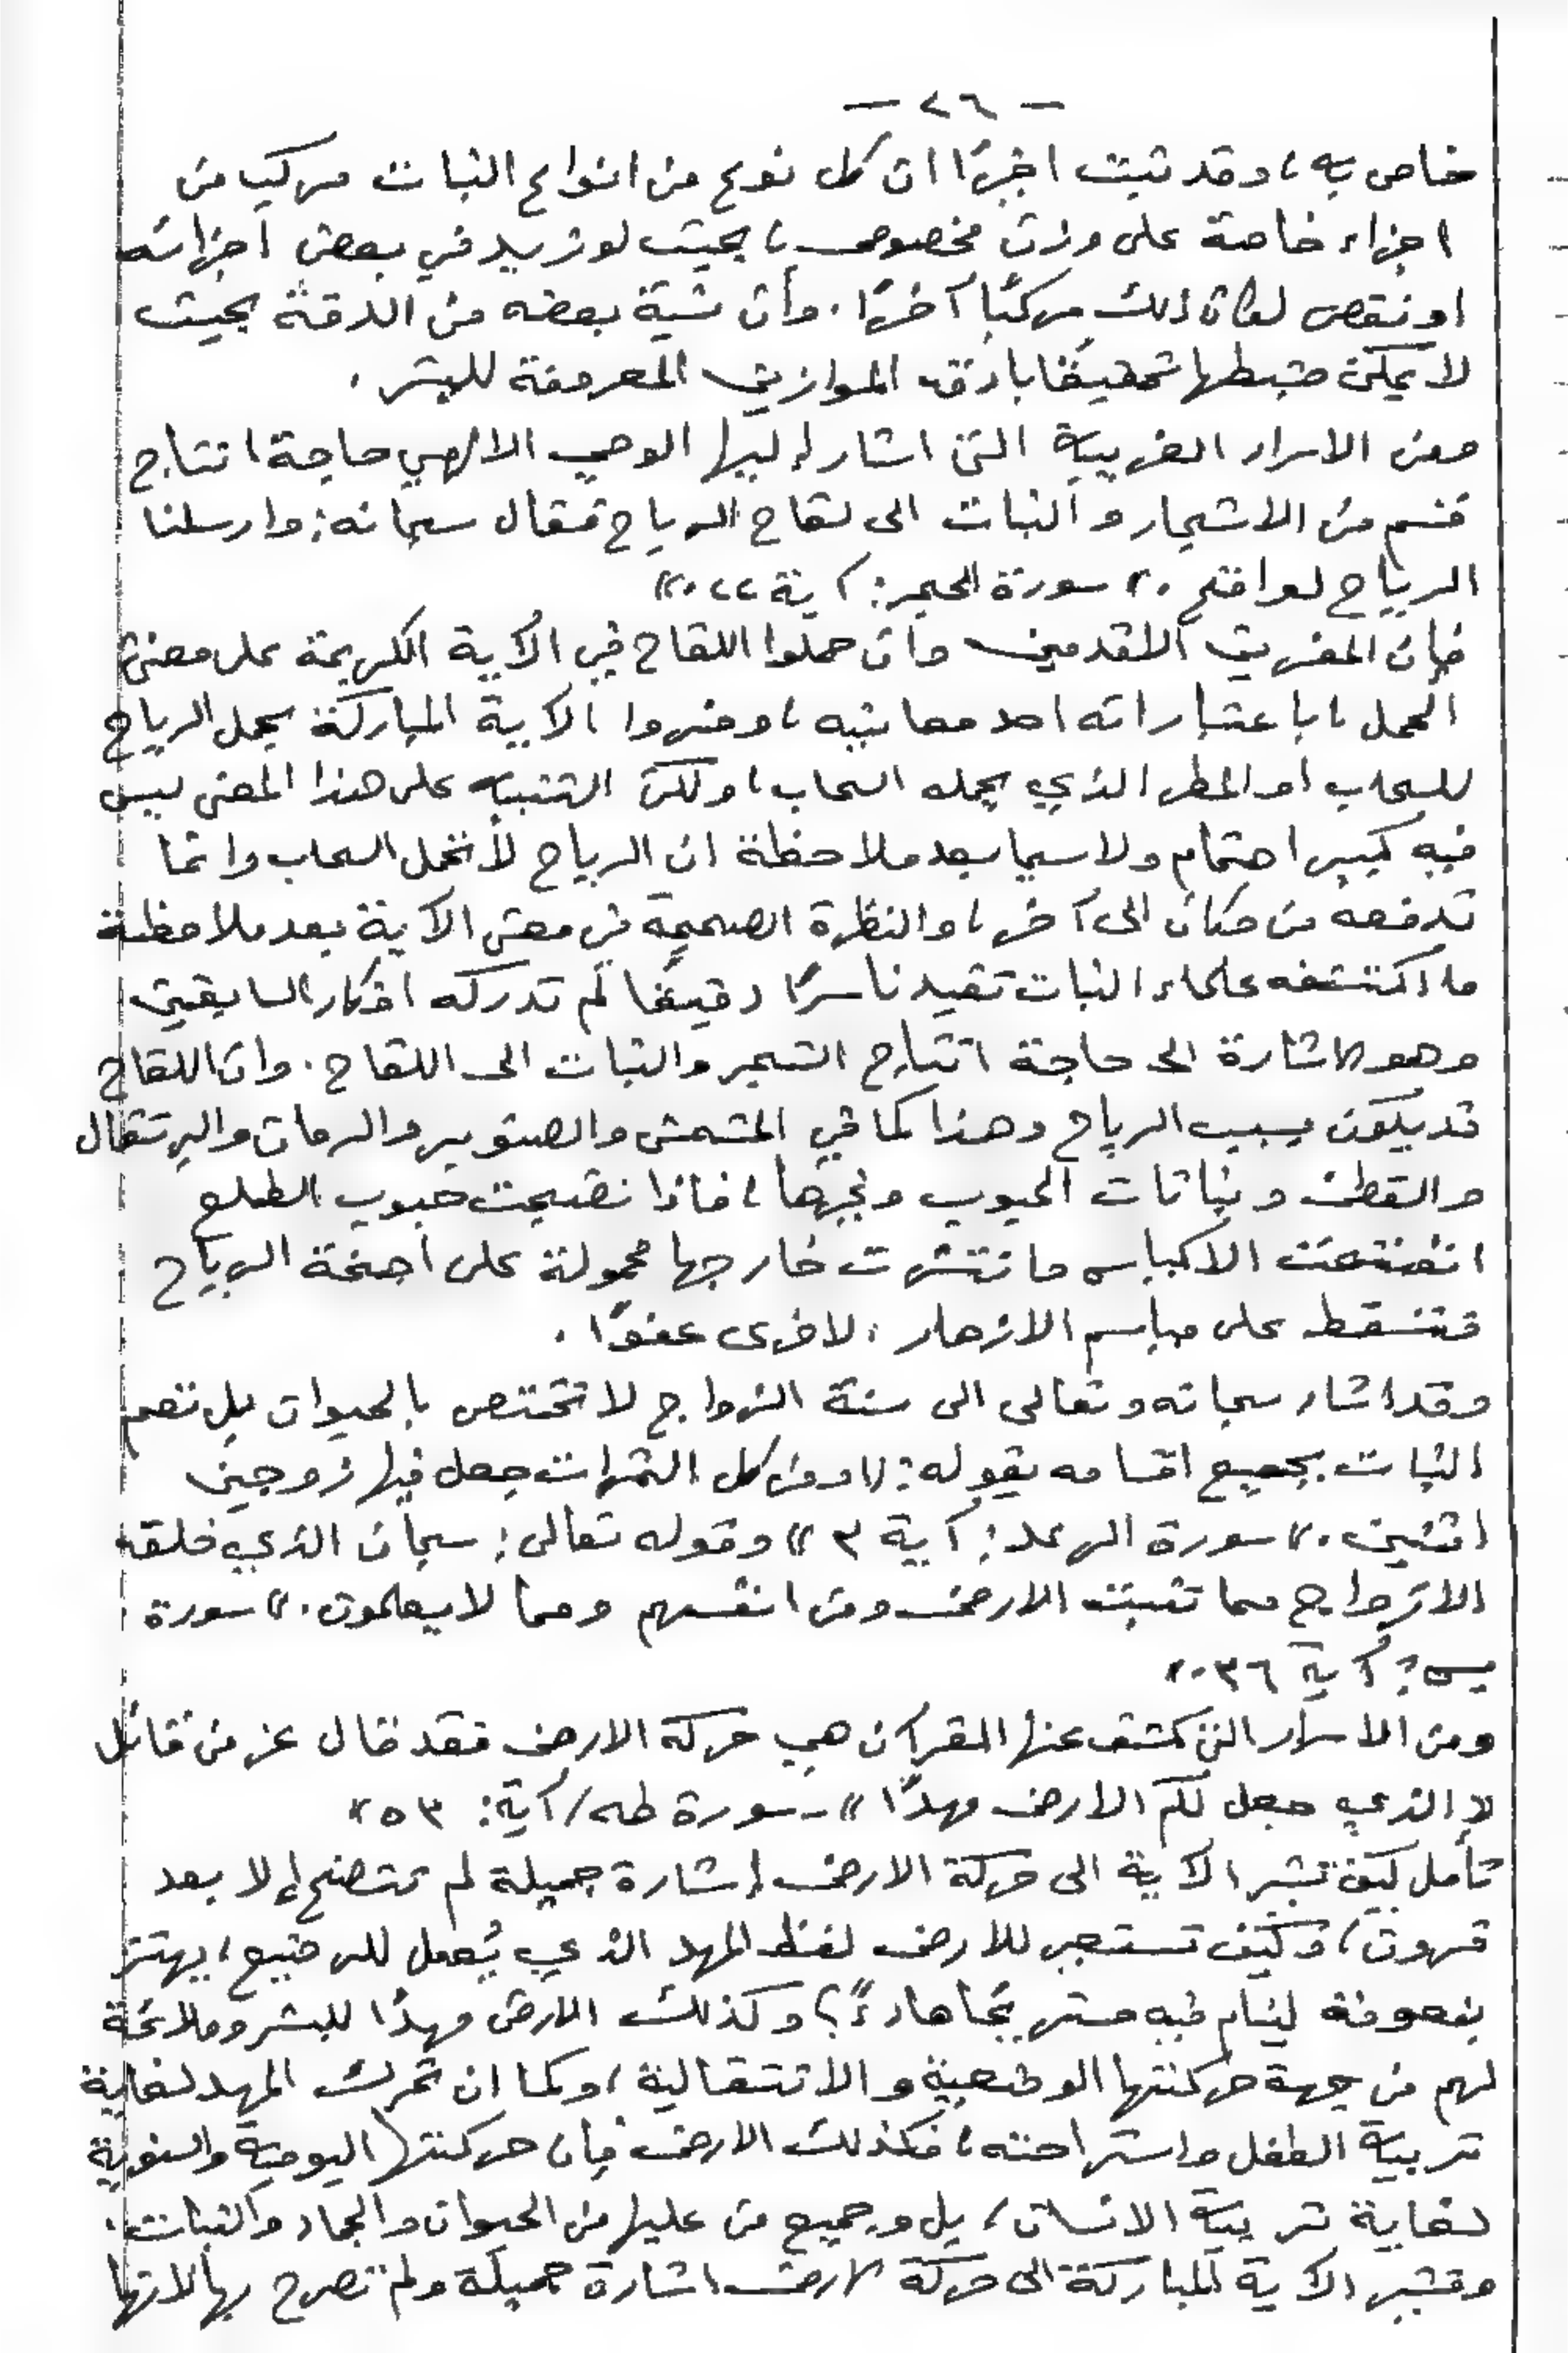 — ٢٦ —
خاص به، وقد ثبت اخيرًا ان كل نوع من انواع النبات مركب من
اجزاء خاصة على وزن مخصوص، بحيث لو زيد في بعض اجزائه
او نقص لكان ذلك مركبًا آخرًا. وان نسبة بعضه من الدقة بحيث
لا يمكن ضبطها تحقيقًا بادق الموازين المعروفة للبشر.
ومن الاسرار الغريبة التي اشار إليها الوحي الالهي حاجة انتاج
قسم من الاشجار والنبات الى لقاح الرياح فقال سبحانه: وارسلنا
الرياح لواقح." سورة الحجر: آية ٢٢."
فإن المفسرين الاقدمين وان حملوا اللقاح في الآية الكريمة على معنى
الحمل، باعتبار انه احد معانيه، وفسروا الآية المباركة بحمل الرياح
للسحاب او المطر الذي يحمله السحاب، ولكن التنبيه على هذا المعنى ليس
فيه كبير اهتمام ولا سيما بعد ملاحظة ان الرياح لا تحمل السحاب وانما
تدفعه من مكان الى آخر، والنظرة الصحيحة في معنى الآية بعد ملاحظة
ما اكتشفه علماء النبات تفيدنا سرًا دقيقًا لم تدركه افكار السابقين
وهو الاشارة الى حاجة انتاج الشجر والنبات الى اللقاح. وان اللقاح
قد يكون بسبب الرياح وهذا كما في المشمش والصنوبر والرمان والبرتقال
والقطن ونباتات الحبوب وغيرها، فاذا نضجت حبوب الطلع
انفتحت الاكياس وانتشرت خارجها محمولة على اجنحة الرياح
فتسقط على مياسم الازهار الاخرى عفوًا.
وقد اشار سبحانه وتعالى الى سنة الزواج لا تختص بالحيوان بل تعم
النبات بجميع اقسامه بقوله: "ومن كل الثمرات جعل فيها زوجين
اثنين." سورة الرعد: آية ٣" وقوله تعالى: سبحان الذي خلق
الازواج مما تنبت الارض ومن انفسهم ومما لا يعلمون." سورة
يس: آية ٣٦."
ومن الاسرار التي كشف عنها القرآن هي حركة الارض فقد قال عز من قائل
"الذي جعل لكم الارض مهدًا" - سورة طه/آية: ٥٣"
تأمل كيف تشير الآية الى حركة الارض إشارة جميلة لم تتضح إلا بعد
قرون، وكيف تستعير للارض لفظ المهد الذي يُعمل للرضيع، يهتز
بنعومة لينام فيه مستريحًا هادءً؟ وكذلك الارض مهدًا للبشر وملائمة
لهم من جهة حركتها الوضعية والانتقالية، وكما ان تحرك المهد لغاية
تربية الطفل واستراحته، فكذلك الارض فإن حركتها اليومية والسنوية
لغاية تربية الانسان، بل وجميع من عليها من الحيوان والجماد والنبات.
وتشير الآية المباركة الى حركة الارض اشارة جميلة ولم تصرح بها لانها